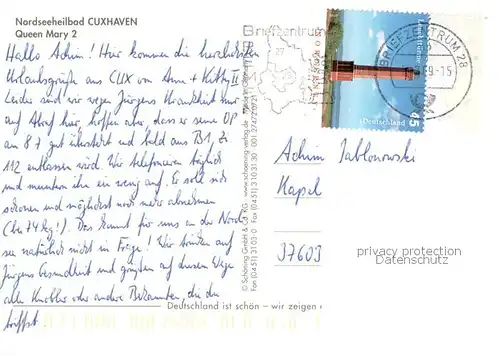 Nordseeheilbad CUXHAVEN
Queen Mary 2
Hallo Achim! Hier kommen die herzlichsten
Urlaubsgrüße aus CUX von Anne + Kitty II
Leider sind wir wegen Jürgens Krankheit nur
auf Abruf hier, hoffen aber, dass er seine OP
am 8.7 gut übersteht und bald aus B1, Z
112 entlassen wird. Wir telefonieren täglich
und muntern ihn ein wenig auf. Er soll sich
schonen und möglichst noch mehr abnehmen
(bis 74 kg!). Das kommt für uns an der Nord-
see natürlich nicht in Frage! Wir trinken auf
Jürgens Gesundheit und grüßen auf diesem Wege
alle Knobler oder andere Bekannten, die du
triffst.
Briefzentrum
BRIEFZENTRUM 28
9-15
Deutschland
45
© Schöning GmbH & Co. KG
Fax (04 51) 3 10 31 30
www.schoening-verlag.de
Achim Jablonowski
Kapel
37603
Deutschland ist schön – wir zeigen
privacy protection
Datenschutz